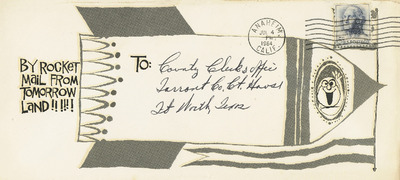 BY ROCKET
MAIL FROM
TOMORROW
LAND!!!!!
TO:
County Clerk's Office
Tarrant Co, Ct. House
Ft Worth Texas
ANAHEIM
JUL 4
1964
CALIF.